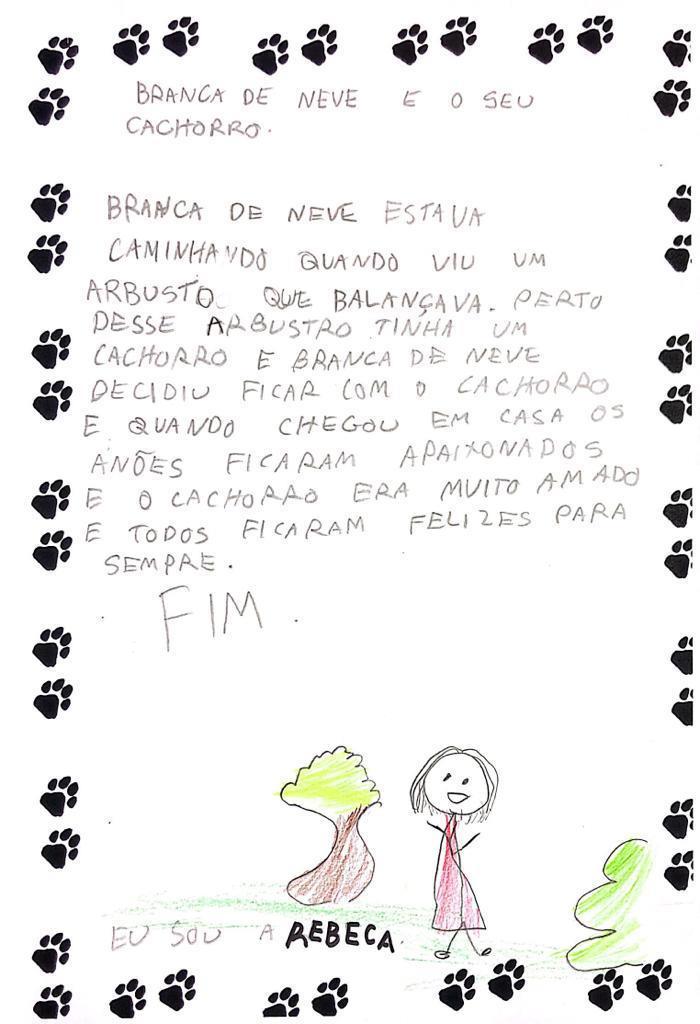 BRANCA DE NEVE E O SEU
CACHORRO.
BRANCA DE NEVE ESTAVA
CAMINHANDO QUANDO VIU UM
ARBUSTO QUE BALANÇAVA. PERTO
DESSE ARBUSTRO TINHA UM
CACHORRO E BRANCA DE NEVE
DECIDIU FICAR COM O CACHORRO
E QUANDO CHEGOU EM CASA OS
ANÕES FICARAM APAIXONADOS
E O CACHORRO ERA MUITO AMADO
E TODOS FICARAM FELIZES PARA
SEMPRE.
FIM.
EU SOU A REBECA.